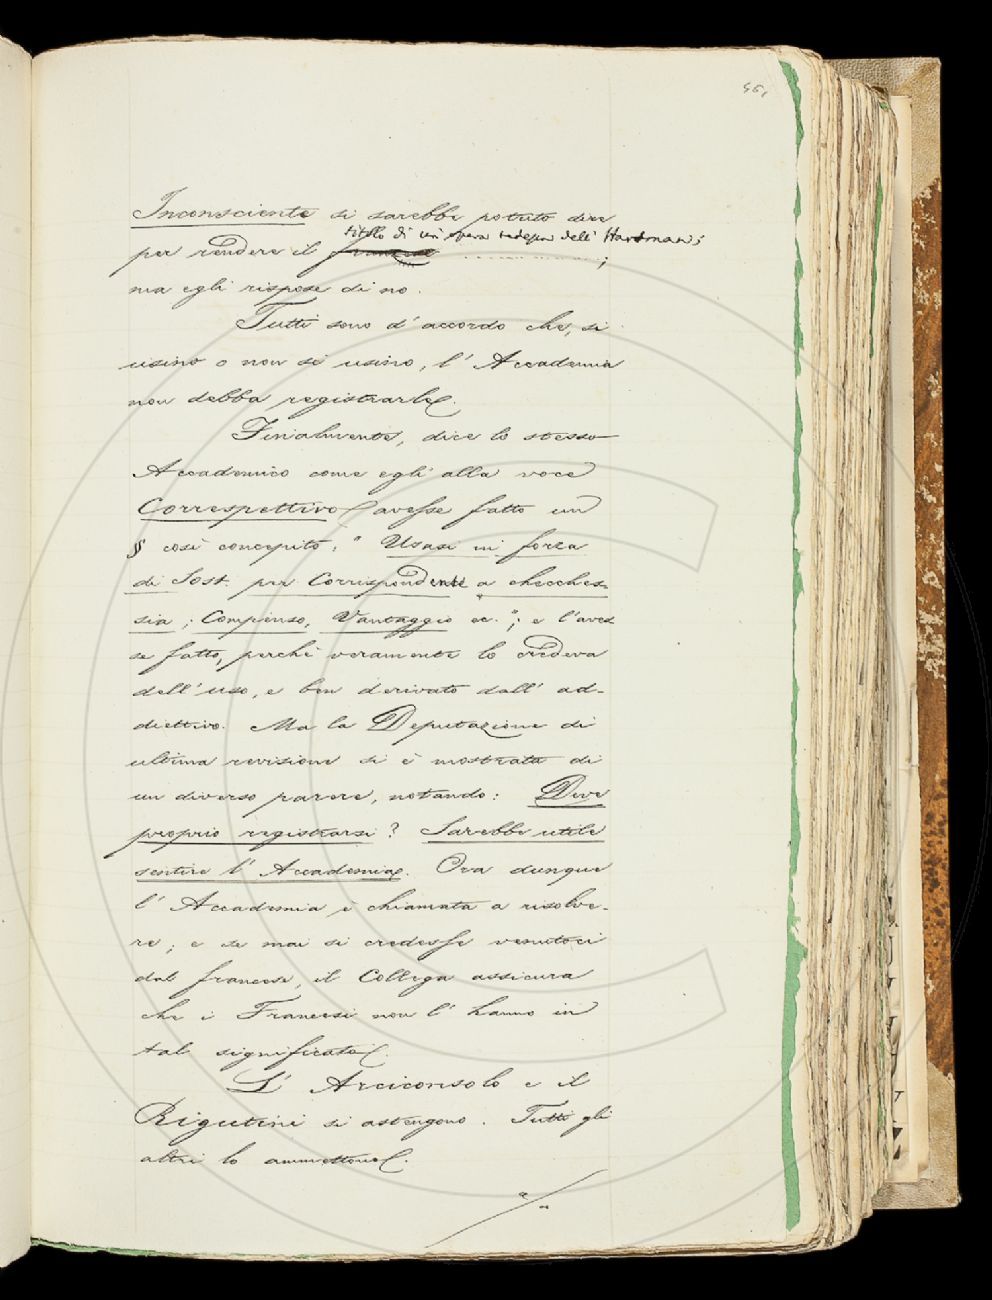 451
Inconsciente si sarebbe potuto dire
titolo di un' opera tedesca dell' Hartmann;
per rendere il francese ;
ma egli rispose di no.
Tutti sono d' accordo che, si
usino o non si usino, l' Accademia
non debba registrarle.
Finalmente, dice lo stesso
Accademico come egli alla voce
Correspettivo avesse fatto un
§ così concepito: " Usasi in forza
di Sost. per Corrispondente a checches-
sia; Compenso, Vantaggio ec. "; e l' aves
se fatto, perchè veramente lo credeva
dell' uso, e ben derivato dall' ad-
diettivo. Ma la Deputazione di
ultima revisione si è mostrata di
un diverso parere, notando: Deve
proprio registrarsi? Sarebbe utile
sentire l' Accademia. Ora dunque
l' Accademia è chiamata a risolve-
re; e se mai si credesse venutoci
dal francese, il Collega assicura
che i Francesi non l' hanno in
tal significato.
L' Arciconsolo e il
Rigutini si astengono. Tutti gli
altri lo ammettono.